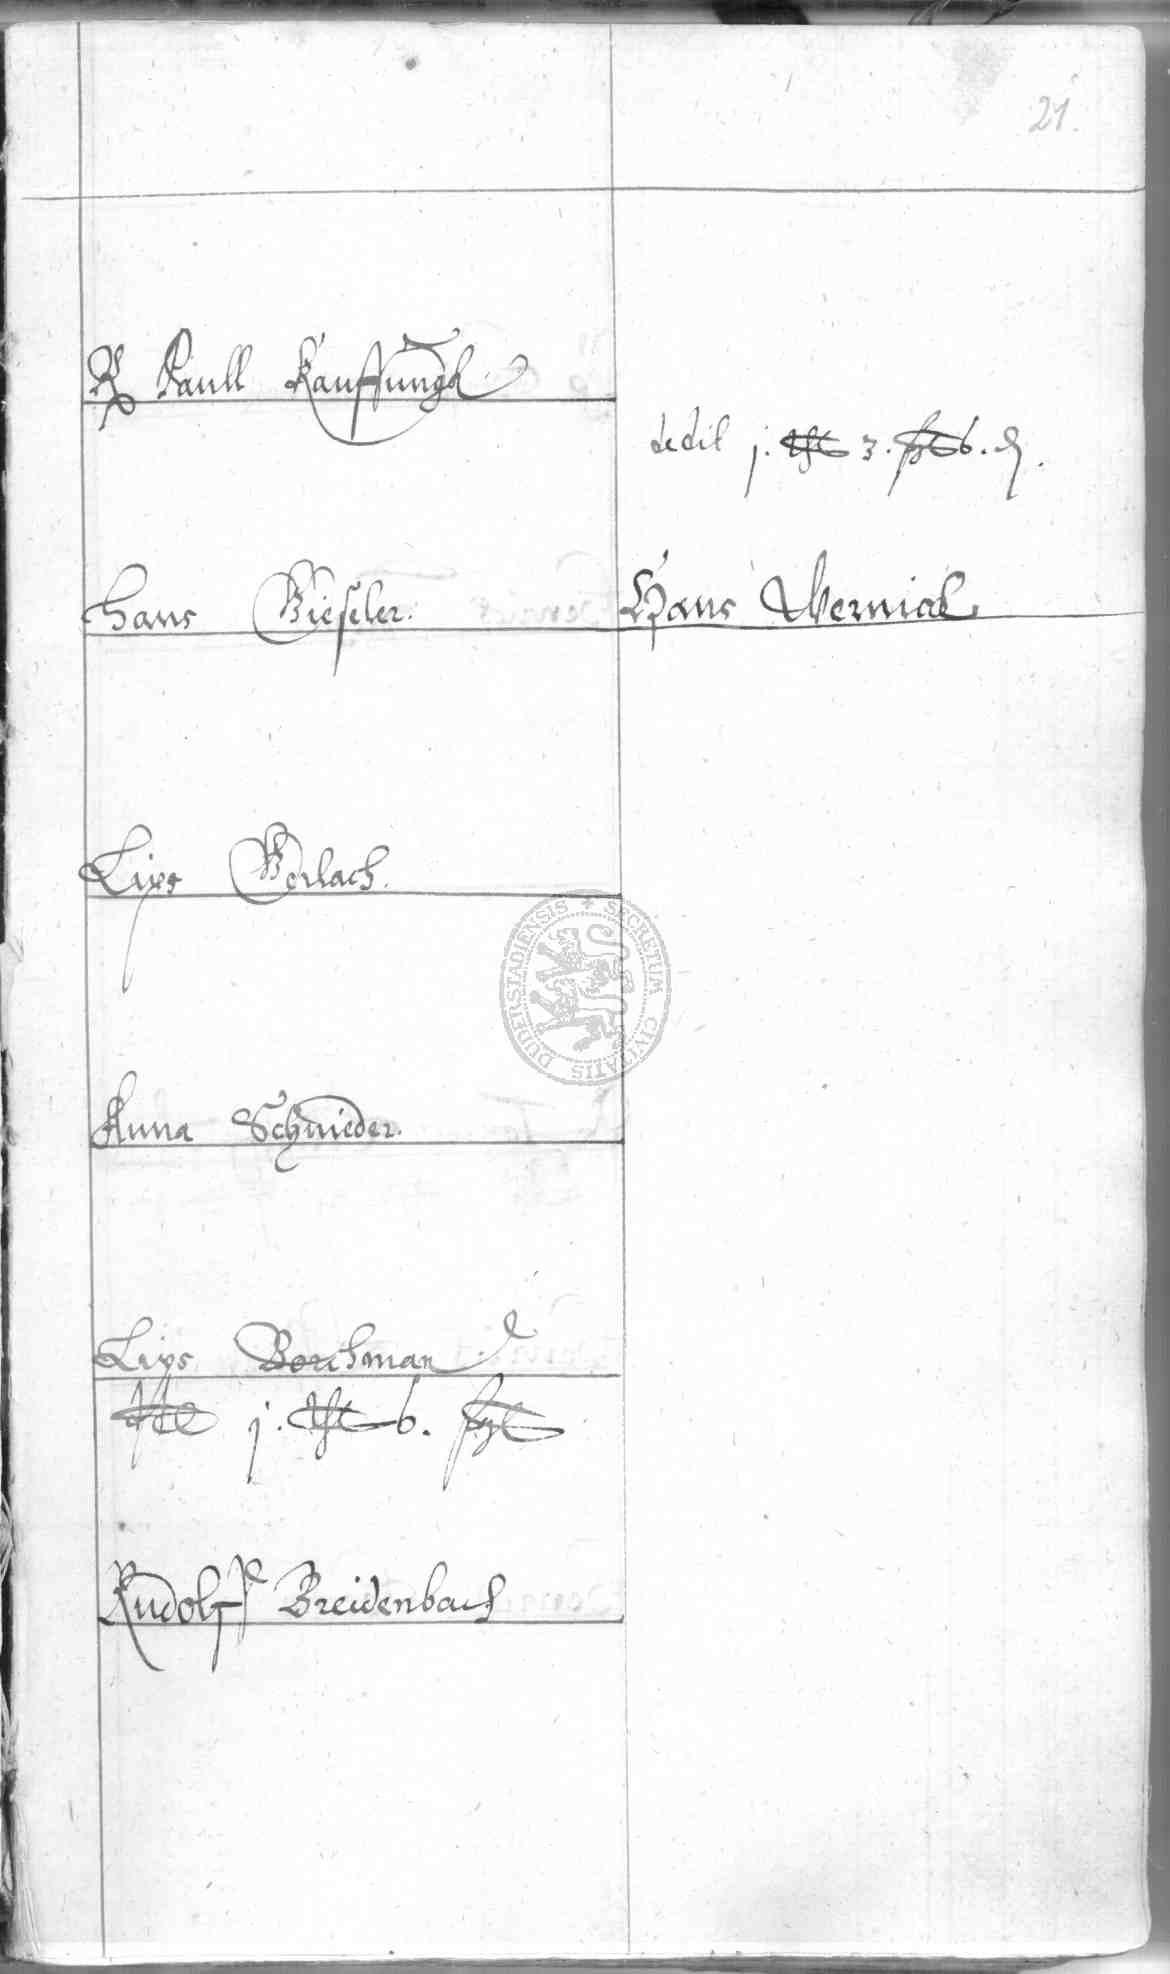 21.
Paull Kauffungk
dedit j. 3. 6. ₰.
Hans Gieseler.
Hans Wernick
Lips Gerlach.
SECRETUM CIVITATIS DUDERSTADIENSIS
Anna Schnieder.
Lips Borchman
j. 6.
Rudolff Breidenbach